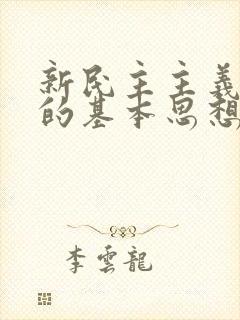 新民主主義
的基本思想
李雲龍